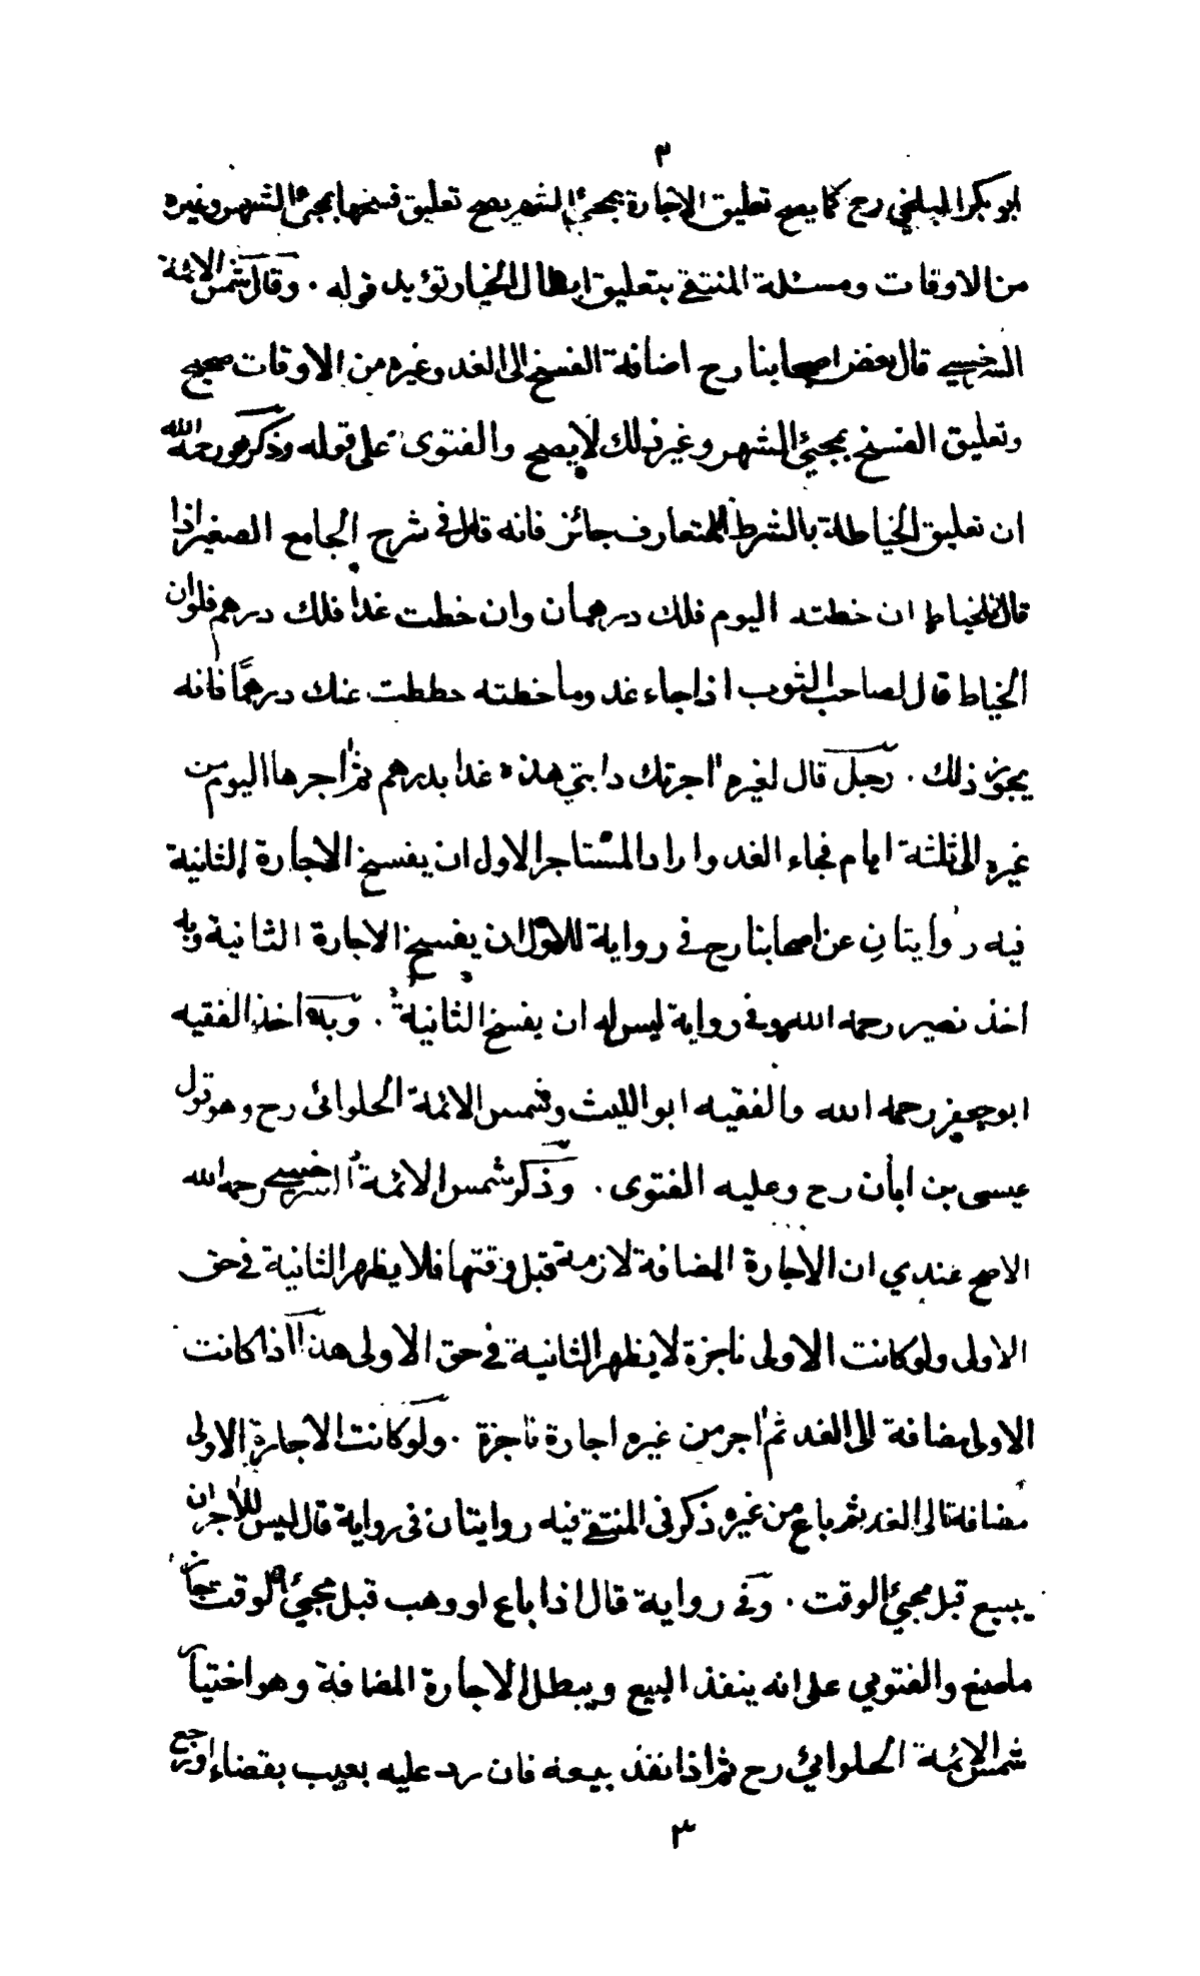 ٣
ابو بكر البلخي رح كما يصح تعليق الاجارة بمجئ الشهر يصح تعليق فسخها بمجئ الشهر وغيره
من الاوقات ومسئلة المنتقى بتعليق ابطال الخيار تؤيد قوله . وقال شمس الائمة
السرخسي قال بعض اصحابنا رح اضافة الفسخ الى الغد وغيره من الاوقات صحيح
وتعليق الفسخ بمجئ الشهر وغير ذلك لا يصح والفتوى على قوله وذكر هو رحمه الله
ان تعليق الخياطة بالشرط المتعارف جائز فانه قال في شرح الجامع الصغير اذا
قال للخياط ان خطته اليوم فلك درهمان وان خطت غدا فلك درهم فلو ان
الخياط قال لصاحب الثوب اذا جاء غد وما خطته حططت عنك درهمًا فانه
يجوز ذلك . رجل قال لغيره اجرتك دابتي هذه غدا بدرهم ثم اجرها اليوم من
غيره الى ثلثة ايام فجاء الغد واراد المستاجر الاول ان يفسخ الاجارة الثانية
فيه روايتانِ عن اصحابنا رح في رواية للاول ان يفسخ الاجارة الثانية وبه
اخذ نصير رحمه الله وفي رواية ليس له ان يفسخ الثانية . وبه اخذ الفقيه
ابو جعفر رحمه الله والفقيه ابو الليث وشمس الائمة الحلوائى رح وهو قول
عيسى بن ابأن رح وعليه الفتوى . وذكر شمس الائمة السرخسي رحمه الله
الاصح عندي ان الاجارة المضافة لازمة قبل وقتها فلا يظهر الثانية في حق
الاولى ولو كانت الاولى ناجزة لا يظهر الثانية في حق الاولى هذا اذا كانت
الاولى مضافة الى الغد ثم اجر من غيره اجارة ناجزة . ولو كانت الاجارة الاولى
مضافة الى الغد ثم باع من غيره ذكر في المنتقى فيه روايتان في رواية قال ليس للآجر ان
يبيع قبل مجئ الوقت . وفي رواية قال اذا باع او وهب قبل مجئ الوقت جاز
ما صنع والفتوى على انه ينفذ البيع ويبطل الاجارة المضافة وهو اختيار
شمس الائمة الحلوائي رح ثم اذا نفذ بيعه فان رد عليه بعيب بقضاء او رجع
٣